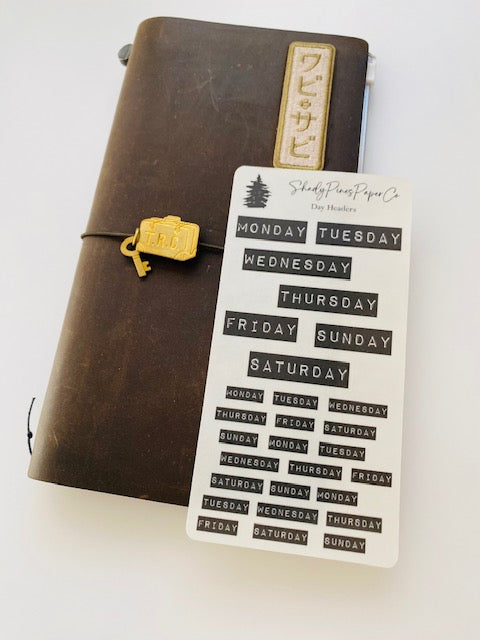 ワビ・サビ
T.R.C.
ShadyPinesPaperCo
Day Headers
MONDAY TUESDAY
WEDNESDAY
THURSDAY
FRIDAY SUNDAY
SATURDAY
MONDAY TUESDAY WEDNESDAY
THURSDAY FRIDAY SATURDAY
SUNDAY MONDAY TUESDAY
WEDNESDAY THURSDAY FRIDAY
SATURDAY SUNDAY MONDAY
TUESDAY WEDNESDAY THURSDAY
FRIDAY SATURDAY SUNDAY